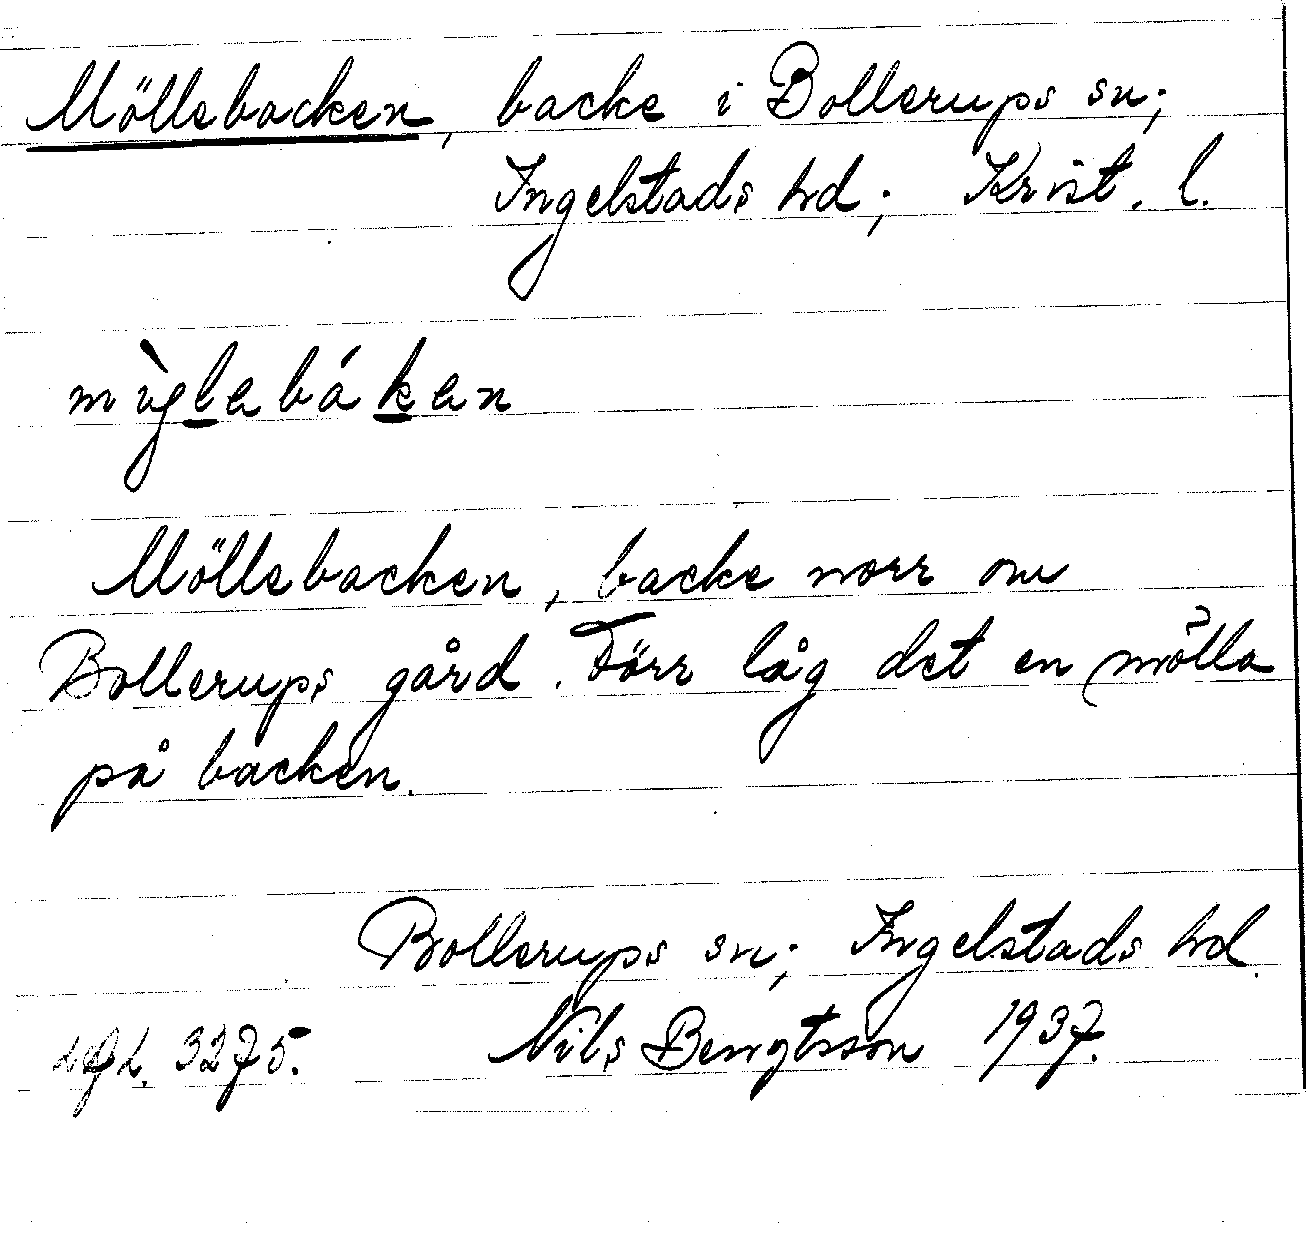 Möllebacken, backe i Bollerups sn;
Ingelstads hd; Krist. l.
Möllebacken, backe norr om
Bollerups gård. Förr låg det en mölla
på backen.
Bollerups sn; Ingelstads hd.
3275. Nils Bengtsson 1937.